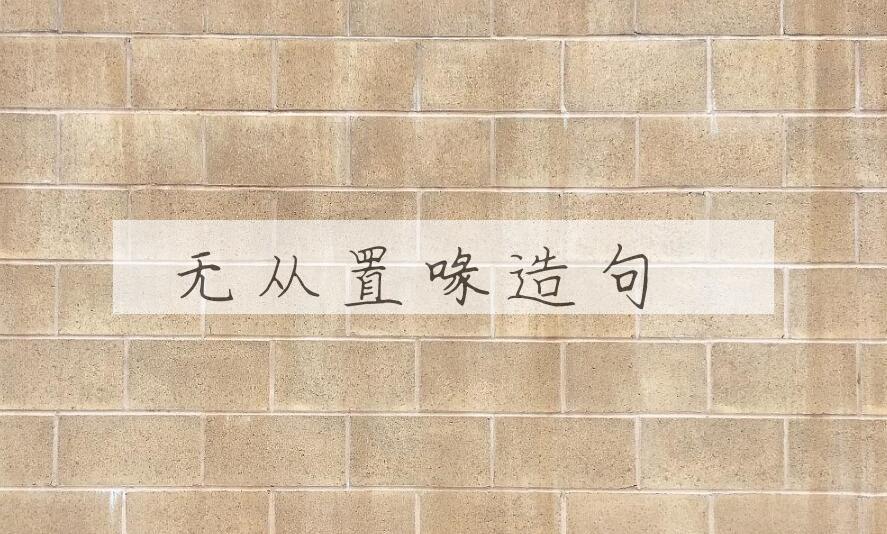 无从置喙造句